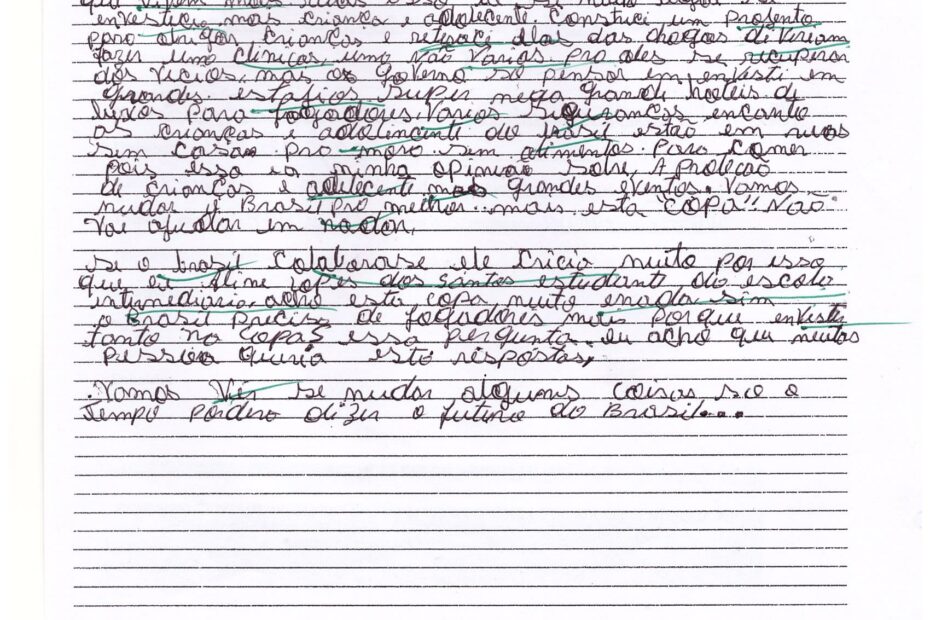 que vivem
envestici mas criança e adolecente. Construi um prosento
para abrigar crianças e retiraci elas das drogas diViriam
fazer uma clinicas, uma não varias pro eles se recuperar
dos vicios, mas os Governo só pensar em envesti em
grandes estafios super mega grande hoteis di
luxos para fogadores, varios siguranças encanto
as crianças e adolincente do brasil estão em ruas
sem casas pro maro sem alimentos para comer
pois essa é a minha opinião sobre, A proteção
de crianças e adelecente mas grandes eventos. Vamos
mudar o Brasil pro melhor.. mais esta "COPA" Não
Vai ajudar em nadar,
se o brasil Colaborase ele Cricia muito por isso
que eu Aline lopes dos santos estudante da escola
intermediario, acho esta copa muito enada sim
o Brasil precisa de fogadores mais porque envesti
tanto na copas essa pergunta eu acho que muitas
pessoa queria esta respostas,
.Vamos Ver se mudar alguns coisas so o
tempo podera dizer o futuro do Brasil...